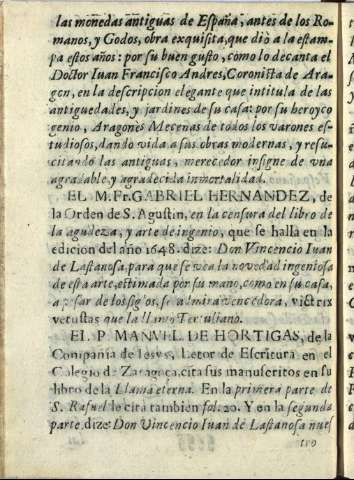 las monedas antiguas de España, antes de los Ro-
manos, y Godos, obra exquisita, que diò a la estam-
pa estos años: por su buen gusto, como lo decanta el
Doctor Iuan Francisco Andres, Coronista de Ara-
gon, en la descripcion elegante que intitula de las
antiguedades, y jardines de su casa: por su heroyco
genio, Aragonès Mecenas de todos los varones es-
tudiosos, dando vida a sus obras modernas, y resu-
citando las antiguas, merecedor insigne de vna
agradable, y agradecida inmortalidad.
EL M. Fr. GABRIEL HERNANDEZ, de
la Orden de S. Agustin, en la censura del libro de
la agudeza, y arte de ingenio, que se halla en la
edicion del año 1648. dize: Don Vincencio Iuan
de Lastanosa, para que se vea la novedad ingeniosa
de esta arte, estimada por su mano, como en su casa,
a pesar de los siglos, se admira vencedora, victrix
vetustas que la llamò Tertuliano.
El P. MANVEL DE HORTIGAS, de la
Compañia de Iesvs, Letor de Escritura en el
Colegio de Zaragoça, cita sus manuscritos en su
libro de la Llama eterna. En la primera parte de
S. Rafael le cita tambien fol. 20. Y en la segunda
parte, dize: Don Vincencio Iuan de Lastanosa nues
tro